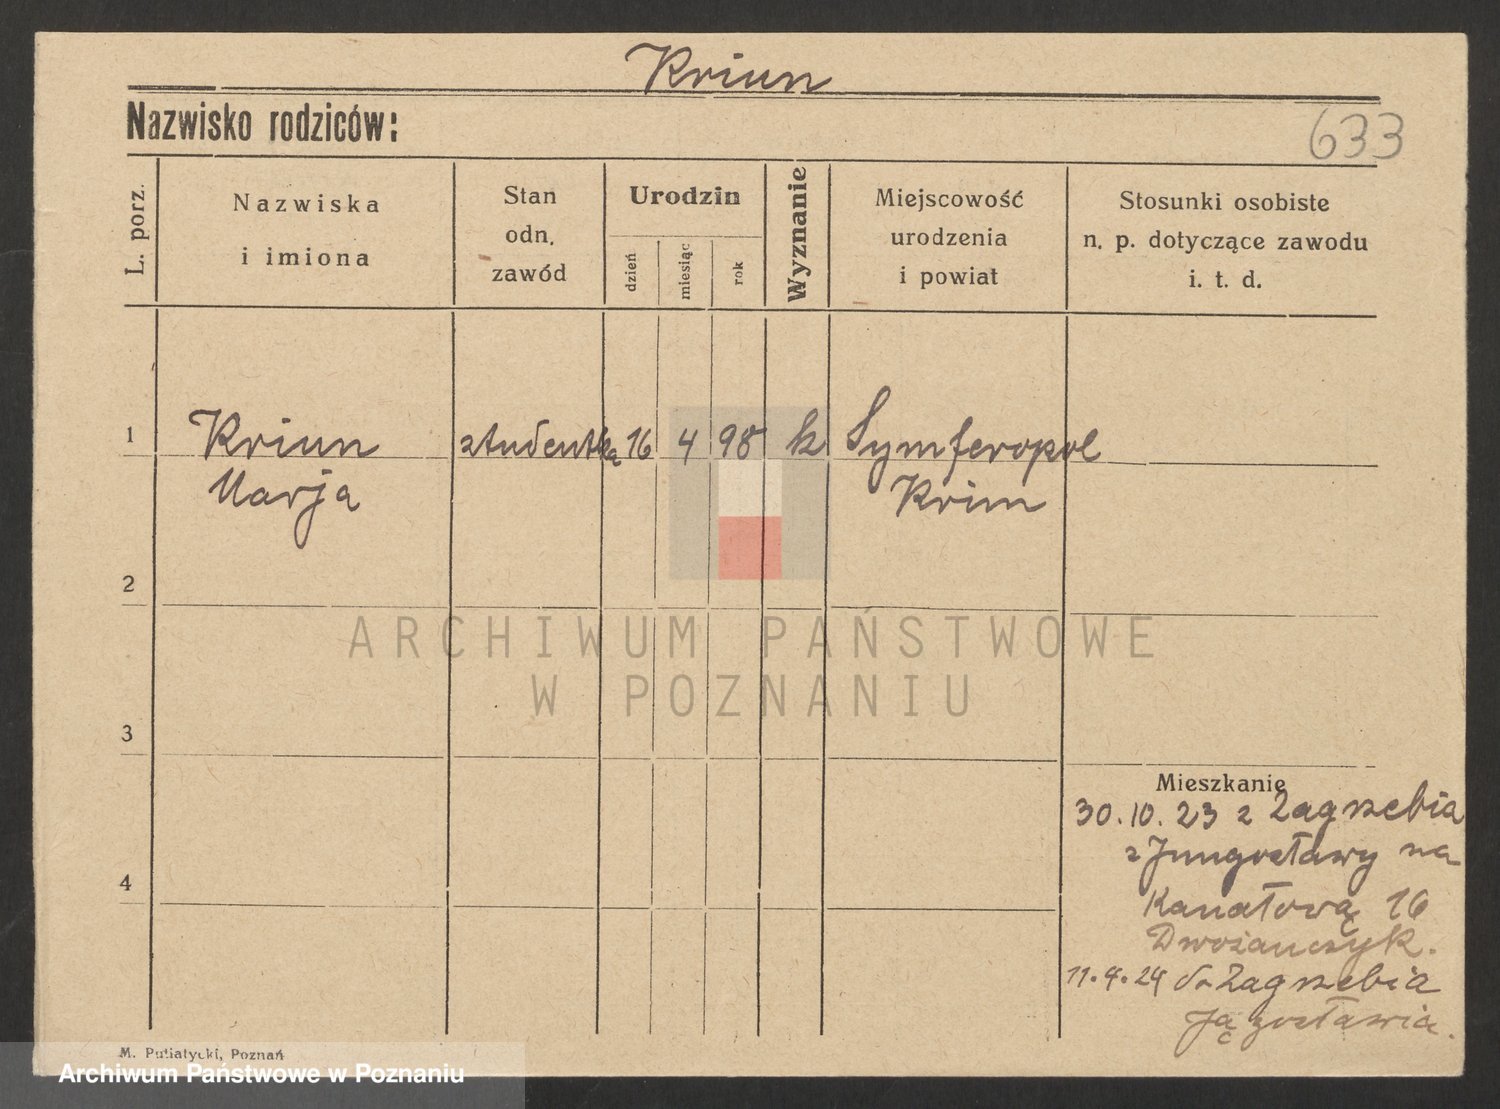 Kriun
Nazwisko rodziców:
633
L. porz.
Nazwiska
i imiona
Stan
odn.
zawód
Urodzin
dzień
miesiąc
rok
Wyznanie
Miejscowość
urodzenia
i powiat
Stosunki osobiste
n. p. dotyczące zawodu
i. t. d.
1
Kriun
Marja
studentka
16
4
98
k
Symferopol
Krim
2
ARCHIWUM PAŃSTWOWE
W POZNANIU
3
Mieszkanie
30.10.23 z Zagrzebia
z Jungosławy na
Kanałową 16
Dwożanczyk.
4
11.4.24 do Zagrzebia
Jągosławia.
M. Putiatycki, Poznań
Archiwum Państwowe w Poznaniu